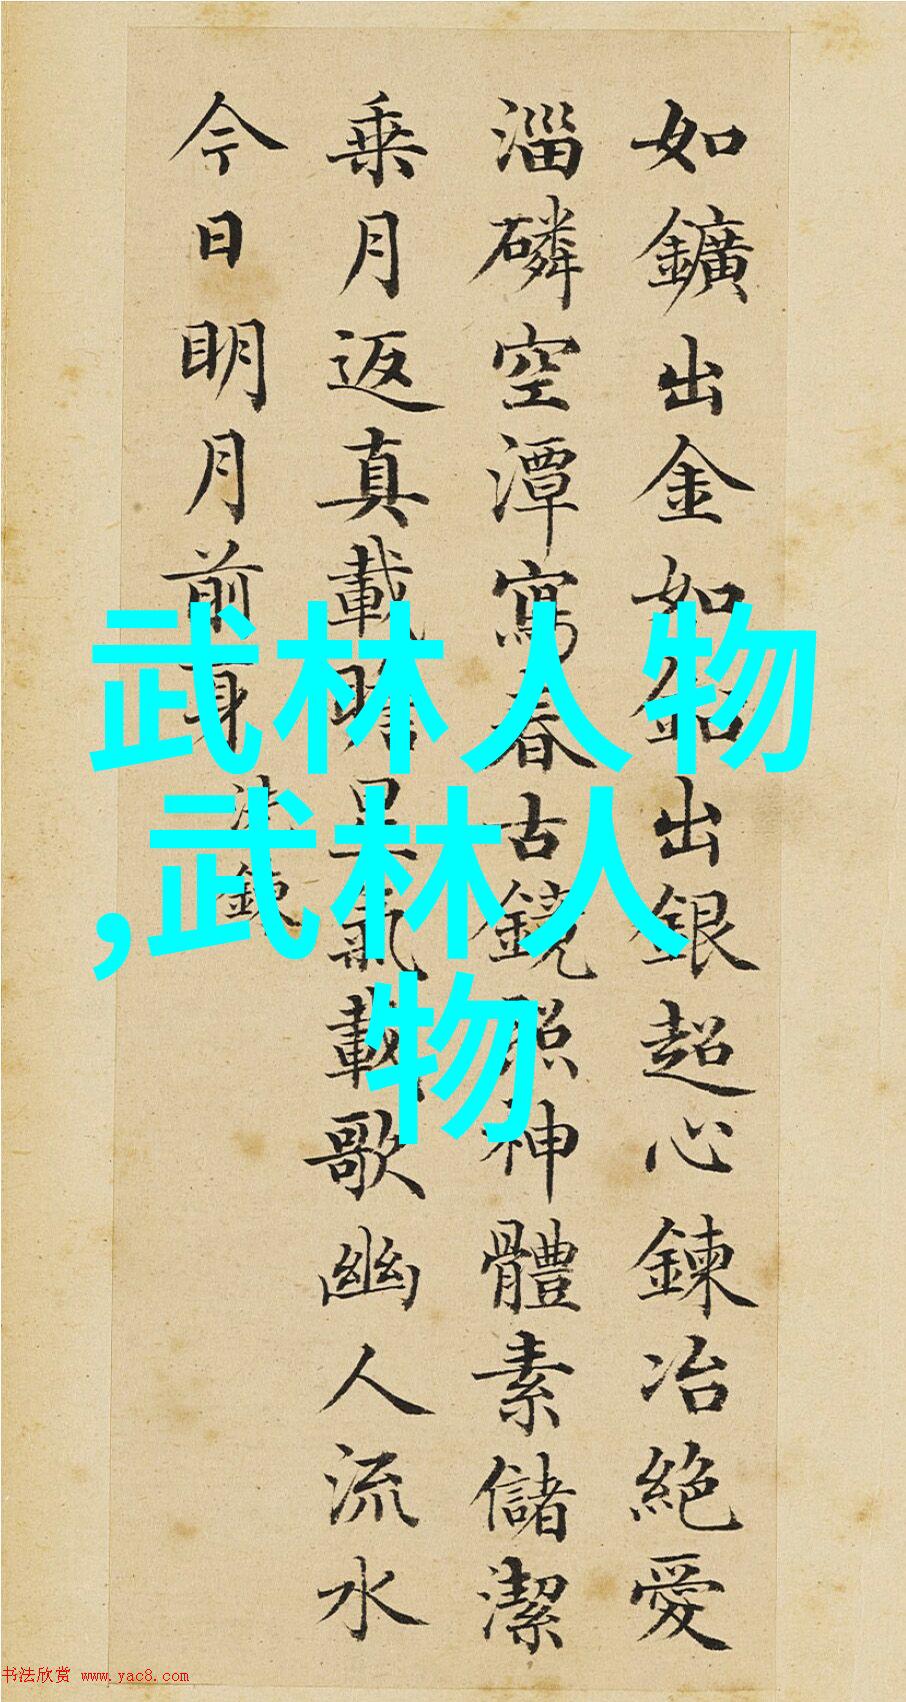 如鑛出金如鉛出銀超心鍊冶絶愛
淄磷空潭寫春古鏡照神體素儲潔
乗月返真載瞻星氣載歌幽人流水
今日明月前身 洗鍊
武林人物
,武林人
物
书法欣赏 www.yac8.com